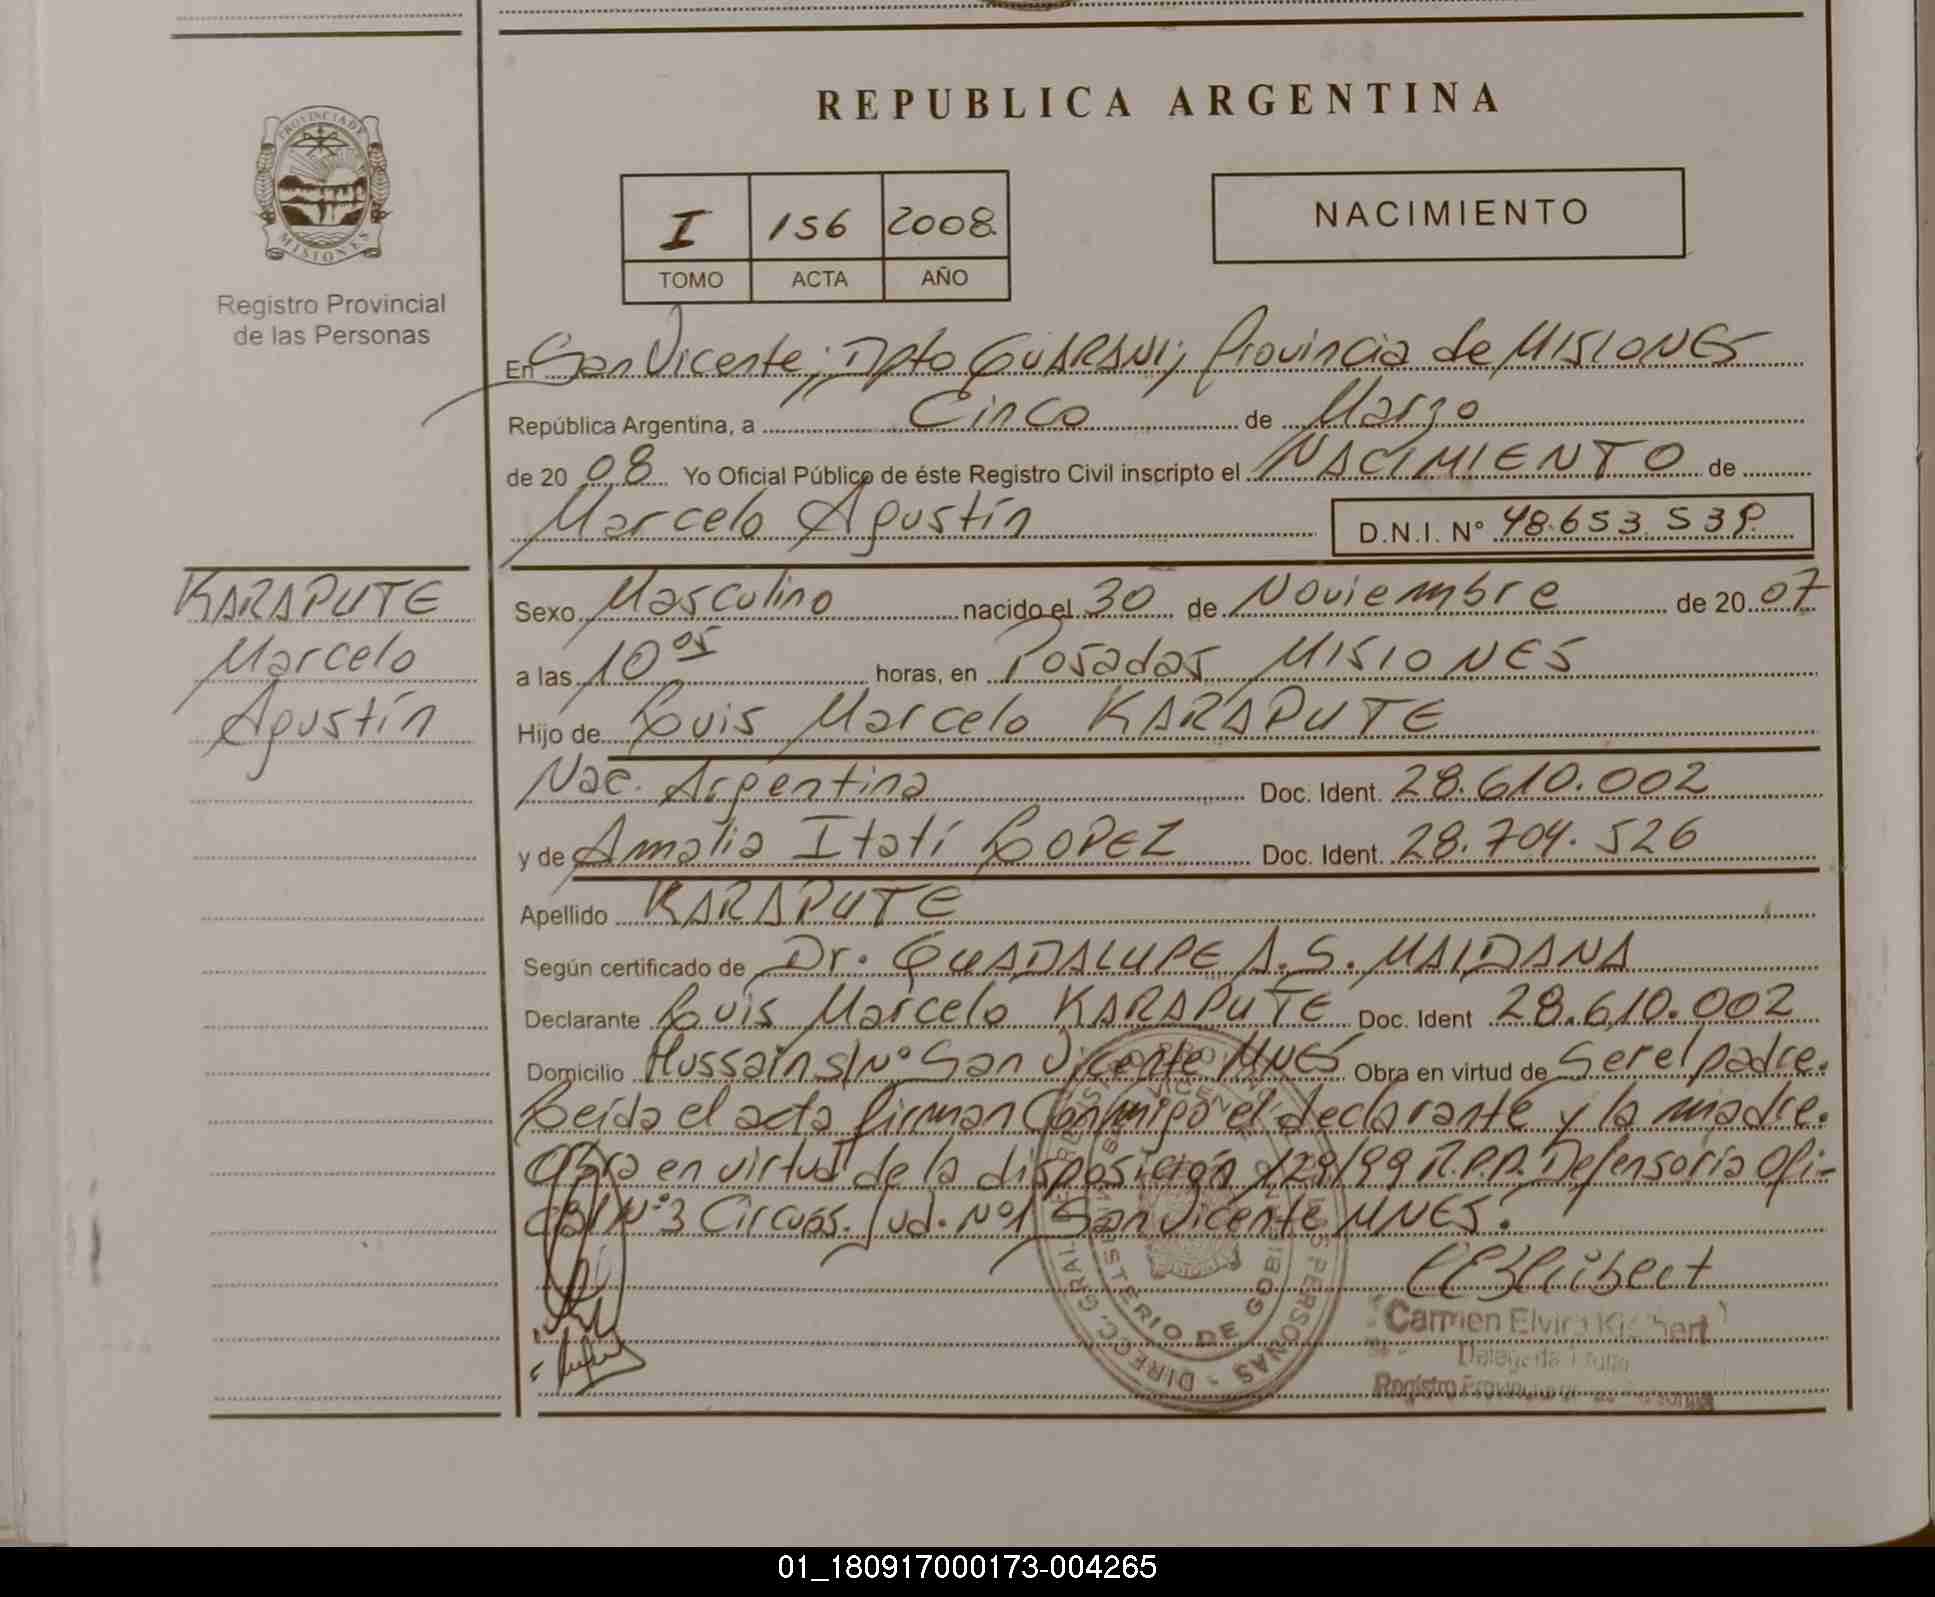 REPUBLICA ARGENTINA
PROVINCIA DE MISIONES
Registro Provincial
de las Personas
I 156 2008
TOMO ACTA AÑO
NACIMIENTO
En San Vicente; Dpto GUARANI; Provincia de MISIONES
República Argentina, a Cinco de Marzo
de 20 08 Yo Oficial Público de éste Registro Civil inscripto el NACIMIENTO de
Marcelo Agustín D.N.I. Nº 48.653.539.
KARAPUTE
Marcelo
Agustín
Sexo Masculino nacido el 30 de Noviembre de 20 07
a las 10 05 horas, en Posadas MISIONES
Hijo de Luis Marcelo KARAPUTE
Nac. Argentina Doc. Ident. 28.610.002
y de Amalia Itatí LOPEZ Doc. Ident. 28.704.526
Apellido KARAPUTE
Según certificado de Dr. GUADALUPE A.S. MAIDANA
Declarante Luis Marcelo KARAPUTE Doc. Ident 28.610.002
Domicilio Hussain s/Nº San Vicente MNES Obra en virtud de Ser el padre.
Leída el acta firman Conmigo el declarante y la madre.
Obra en virtud de la disposición 129/99 R.P.P. Defensoria Ofi-
cial Nº3 Circuns. Jud. Nº1 San Vicente MNES.
Carmen Elvira
Registro
DIREC. GRAL. PERSONAS
MINISTERIO DE GOB
01_180917000173-004265